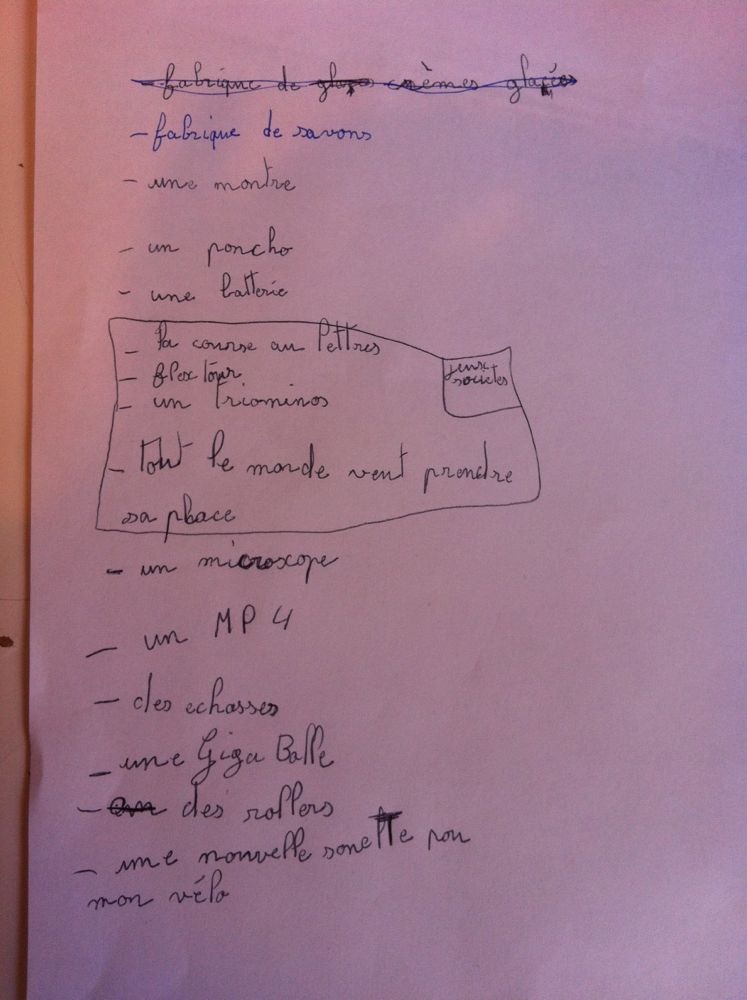 - fabrique de glaces crèmes glacées
- fabrique de savons
- une montre
- un poncho
- une batterie
- la course au lettres
jeux
societes
- flextour
- un Triominos
- Tout le monde veut prendre
sa place
- un microscope
- un MP4
- des echasses
- une Giga Balle
- un des rollers
- une nouvelle sonette pou
mon vélo